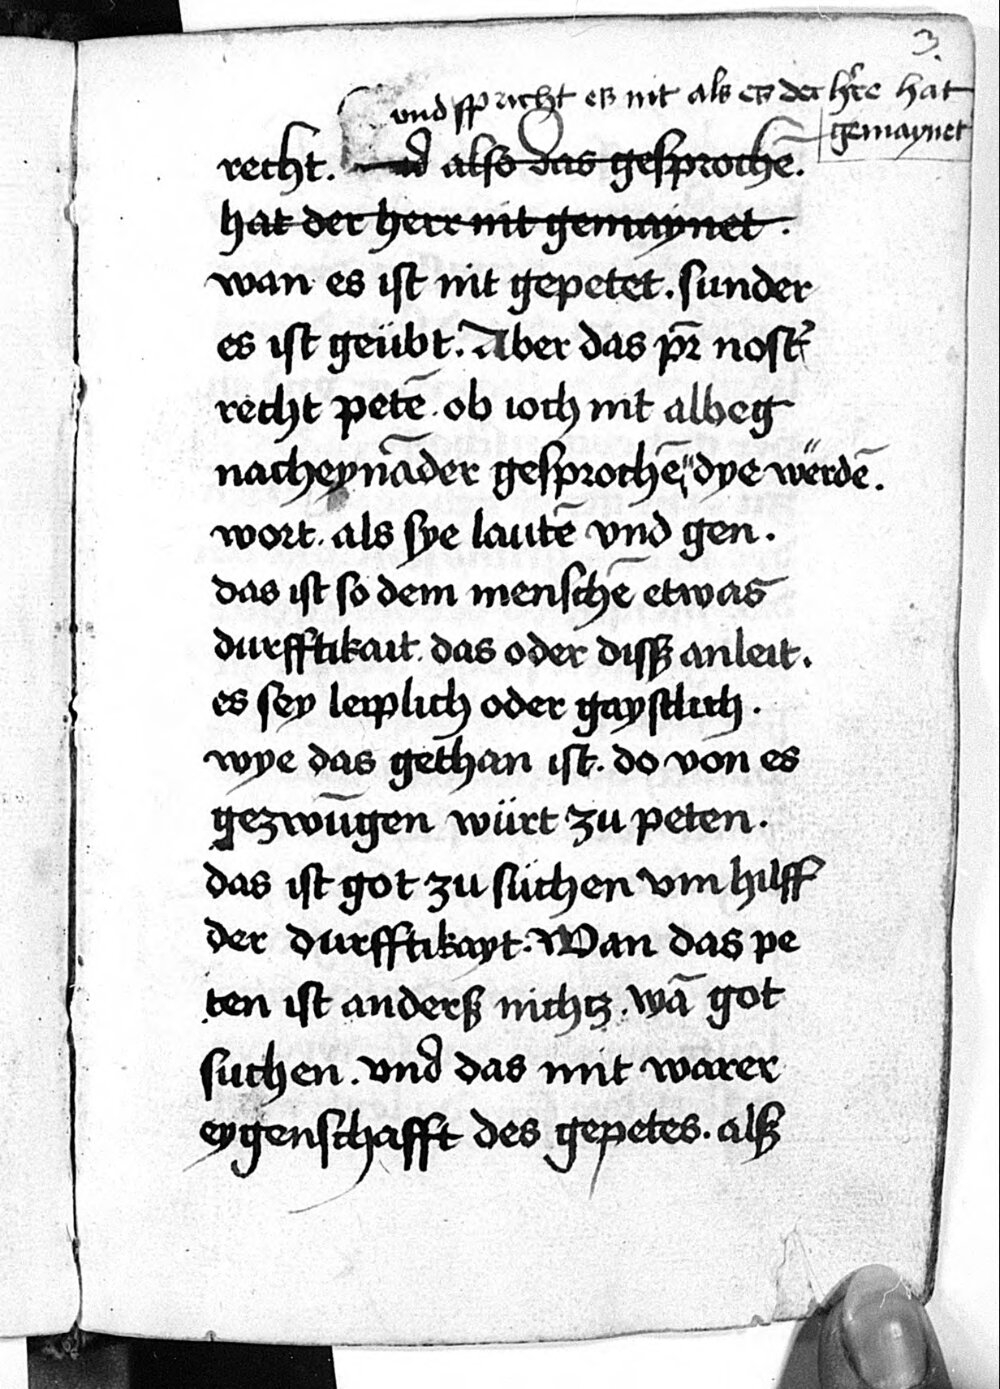 3.
vnd sp richt es nit als es der hr̄re hat
gemaynet
recht. vnd also das gesprochē.
hat der herr nit gemaynet.
wan es ist nit gepetet. sunder
es ist geübt. Aber das pr̄ nostr̄
recht petē. ob ioch nit albeg
nacheynāder gesprochē dye werdē.
wort. als sye lautē vnd gen.
das ist so dem menschē etwas
durfftikait. das oder diſſʒ anleit.
es sey leiplich oder gaystlich.
wye das gethan ist. do von es
gezwūgen würt zu peten.
das ist got zu süchen vm hilff
der durfftikayt. Wan das pe
ten ist anderß nichtz. wā got
suchen. vnd das mit warer
eygenschafft des gepetes. alß